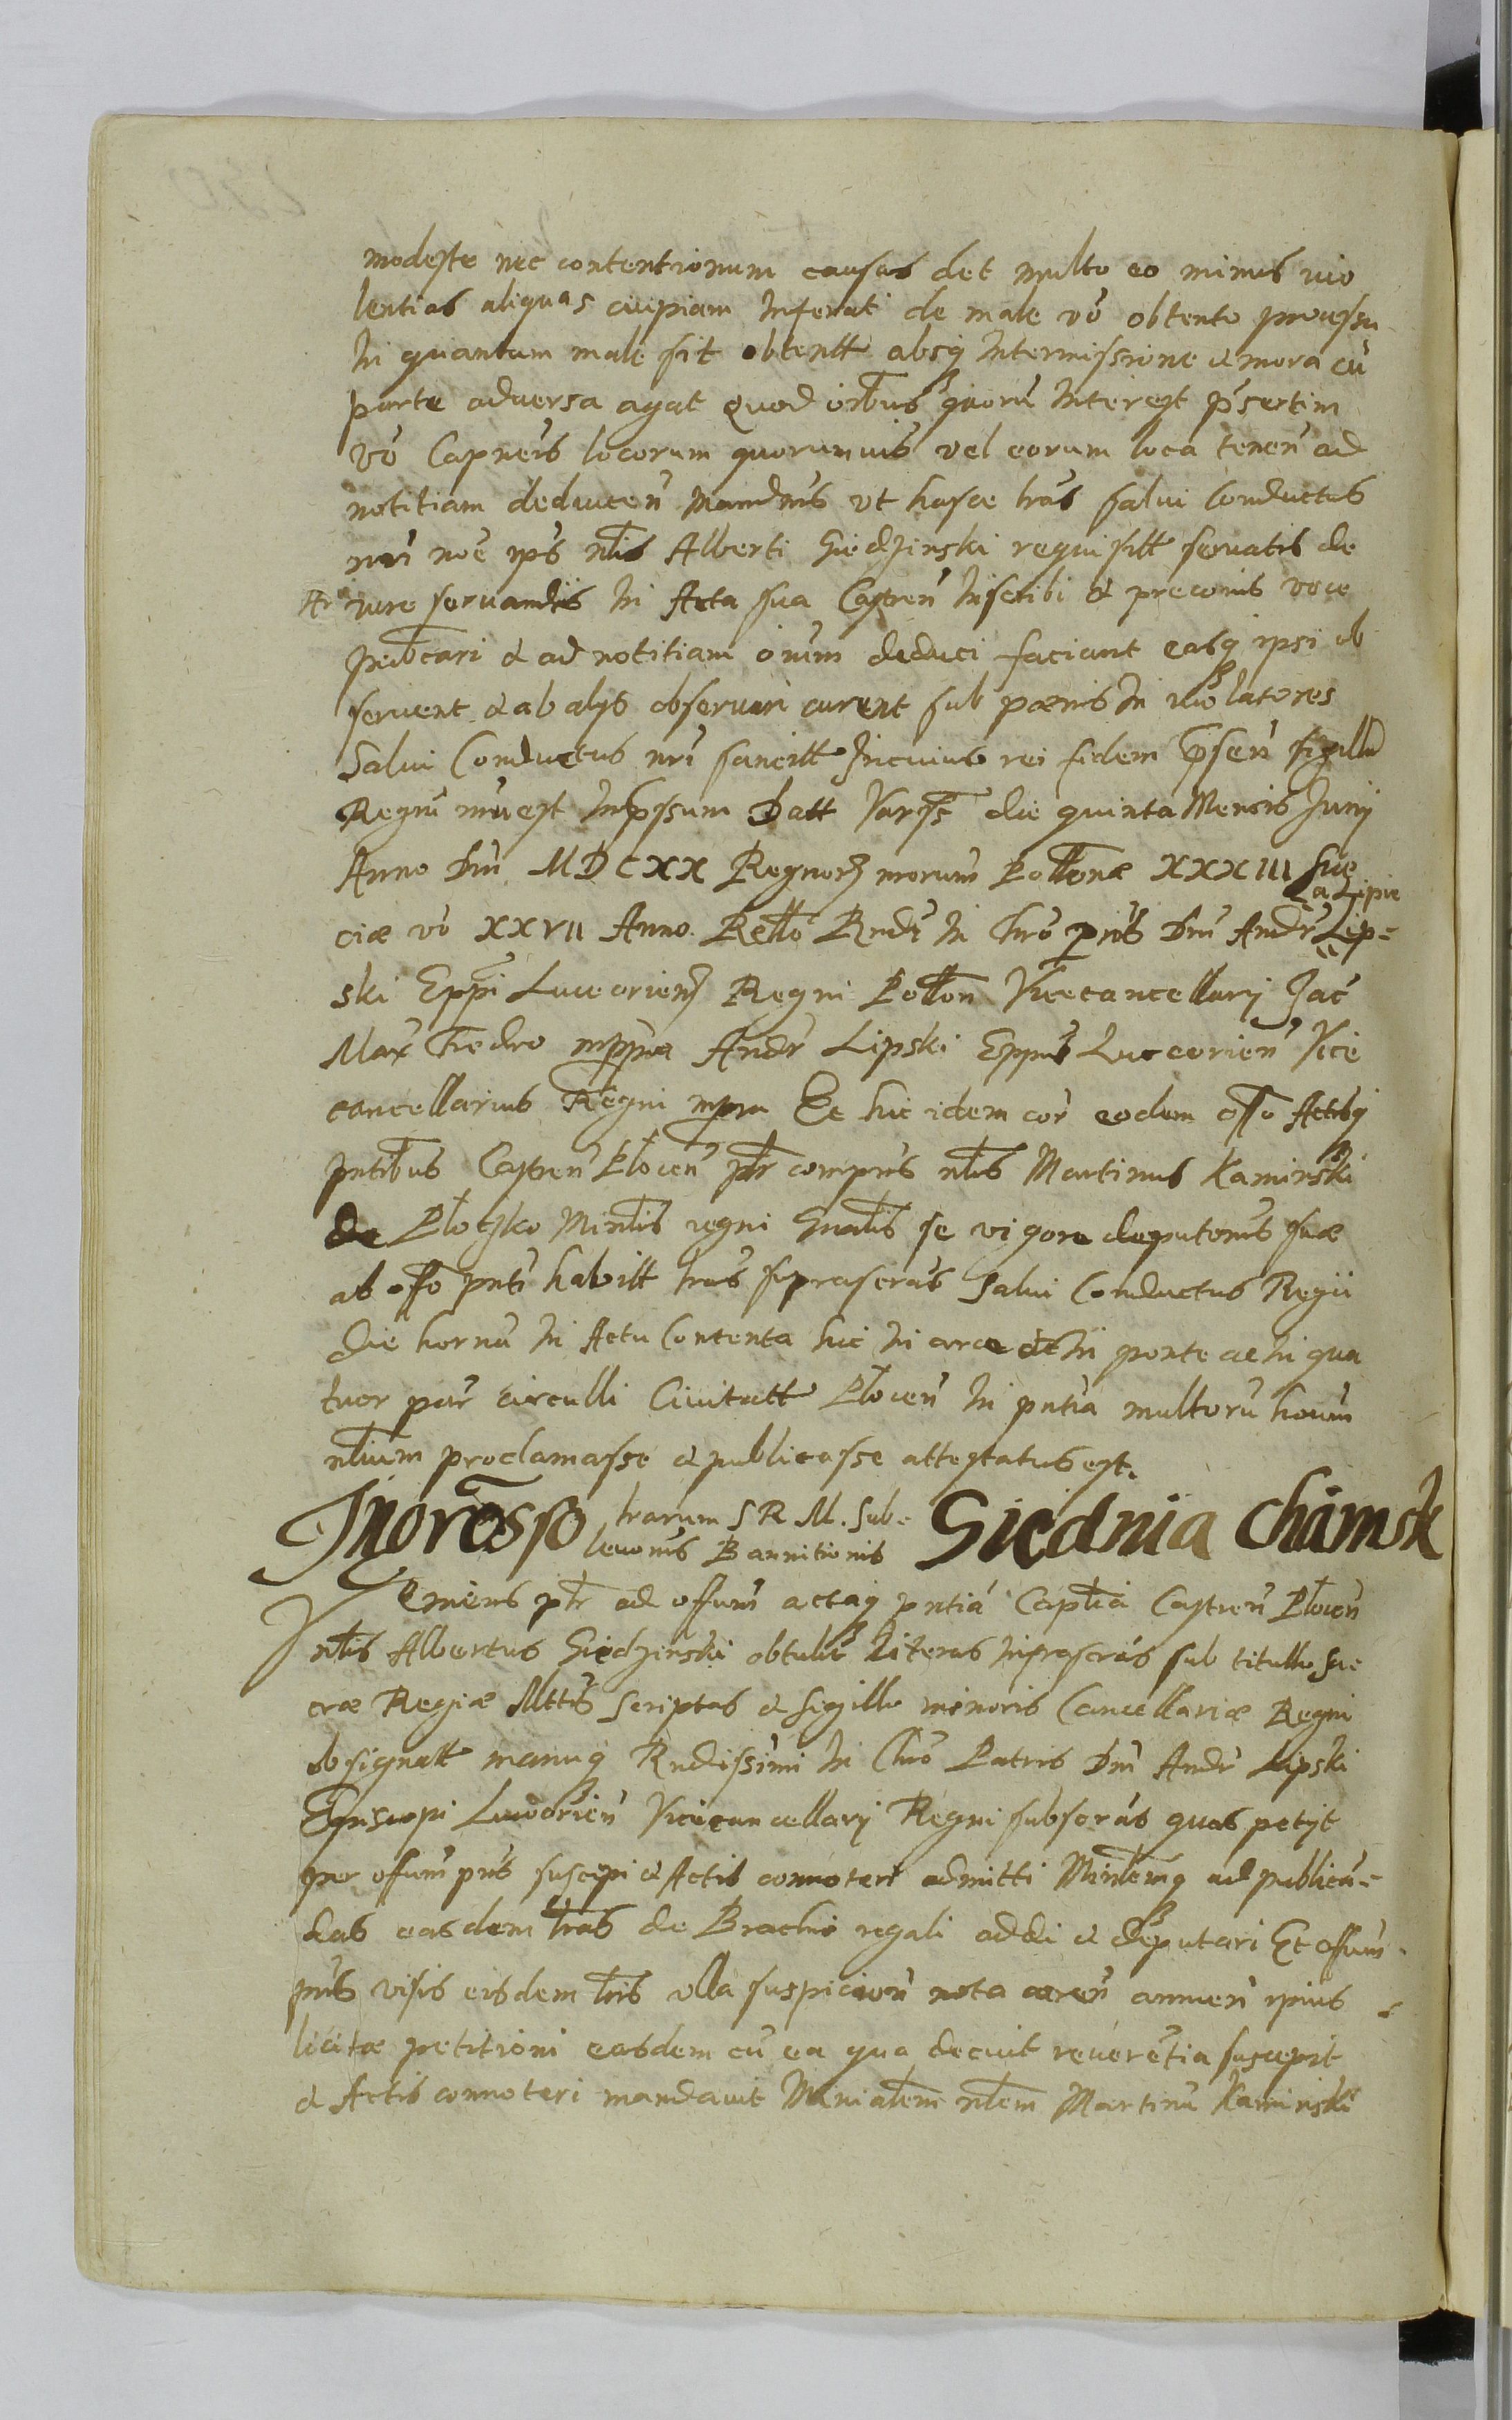 modeste nec contentionum causas det multo eo minus vio
lentias aliquas cuipiam inferat de male vo obtento processu
In quantum male sit obtentt absq intermissione & mora cu
parte adversa agat Quod oibus quoru interest pnsertim
vo Capneis locorum quorumvis vel eorum loca tenen ad
notitiam deducen Mandmus ut hasce lras salvi Conductus
nri noe ips nlis Alberti Giedzinski requisitt servatis de
iure servandis In Acta sua Castren inscribi & preconis voce
publcari & ad notitiam oium deduci faciant easq ipsi ob
servent & ab alys observari curent sub poenis In violatores
Salvi Conductus nri sancitt In cuius rei fidem psen sigillu
Regni nru est Impssum Datt Vars die quinta Mensis Juny
Anno Dni MDCXX Regnor nrorum Pollonæ XXXIII Sue
ciæ vo XXVII Anno. Rello Rndi In Chro pris Dni Andr a Lipie Lip=
ski Eppi Luceorien Regni Pollon Vicecancellary Jac
Max Fredro mppria Andr Lipski Eppus Luceorien Vice
cancellarius Regni mpra Et hic idem cor eodem offo Actisq
pntibus Castren Plocen pltr comprus nlis Martinus Kaminski
de Ploczko Minlis regni Gnalis se vigore deputonis suæ
ab offo pnti habitt lras suprascras Salvi Conductus Regii
die horna In Actu Contenta hic In arce et In ponte ac In qua
tuor par circulli Civitatt Plocen In pntia multoru houm
nlium proclamasse & publicasse attestatus est.
Ingrosso lrarum S R M. Sub=
levonis Bannitionis Giednia Chamsk
Veniens pltr ad offum actaq pntia Caplia Castren Plocen
nlis Albertus Giedzinski obtulit literas infrascras sub titullo Sa
cræ Regiæ Mttis Scriptas & Sigillo minoris Cancellariæ Regni
obsignatt manuq Rndissimi In Chro Patris Dni Andr Lipski
Episcopi Luceorien Vicecancellary Regni subscras quas petyt
per offum pns suscepi & Actis connotari admitti Minlemq ad publican=
das easdem lras de Brachio regali addi & deputari Et offum
pns visis eisdem lris ulla suspicion nota caren annuen ipius
licitæ petitioni easdem cu ea qua decuit reveretia suscepit
& Actis connotari mandavit Minialem nlem Martinu Kaminski